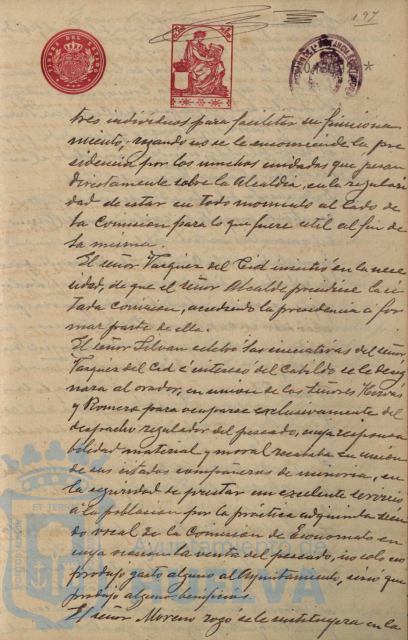 197
tres individuos para facilitar su funciona
miento, rogando no se le encomiende la pre
sidencia por los muchos cuidados que pesan
directamente sobre la Alcaldía, en la seguri
dad de estar en todo momento al lado de
la Comision para lo que fuere útil al fin de
la misma.
El señor Vazquez del Cid insistió en la nece
sidad, de que el señor Alcalde presidiese la ci
tada comision, accediendo la presidencia a for
mar parte de ella.
El señor Silvan celebró las iniciativas del señor
Vazquez del Cid é interesó del Cabildo se le desig
nara al orador, en union de los Señores Hervás
y Romero para ocuparse exclusivamente del
despacho regulador del pescado, cuya responsa
bilidad material y moral recababa en union
de sus citados compañeros de minoria, en
la seguridad de prestar un excelente servicio
a la poblacion por la práctica adquirida sien
do vocal de la Comision de Economato en
cuya ocasion la venta del pescado, no solo no
produjo gasto alguno al Ayuntamiento, sino que
produjo algunos beneficios.
El señor Moreno rogó se le sustituyera en la